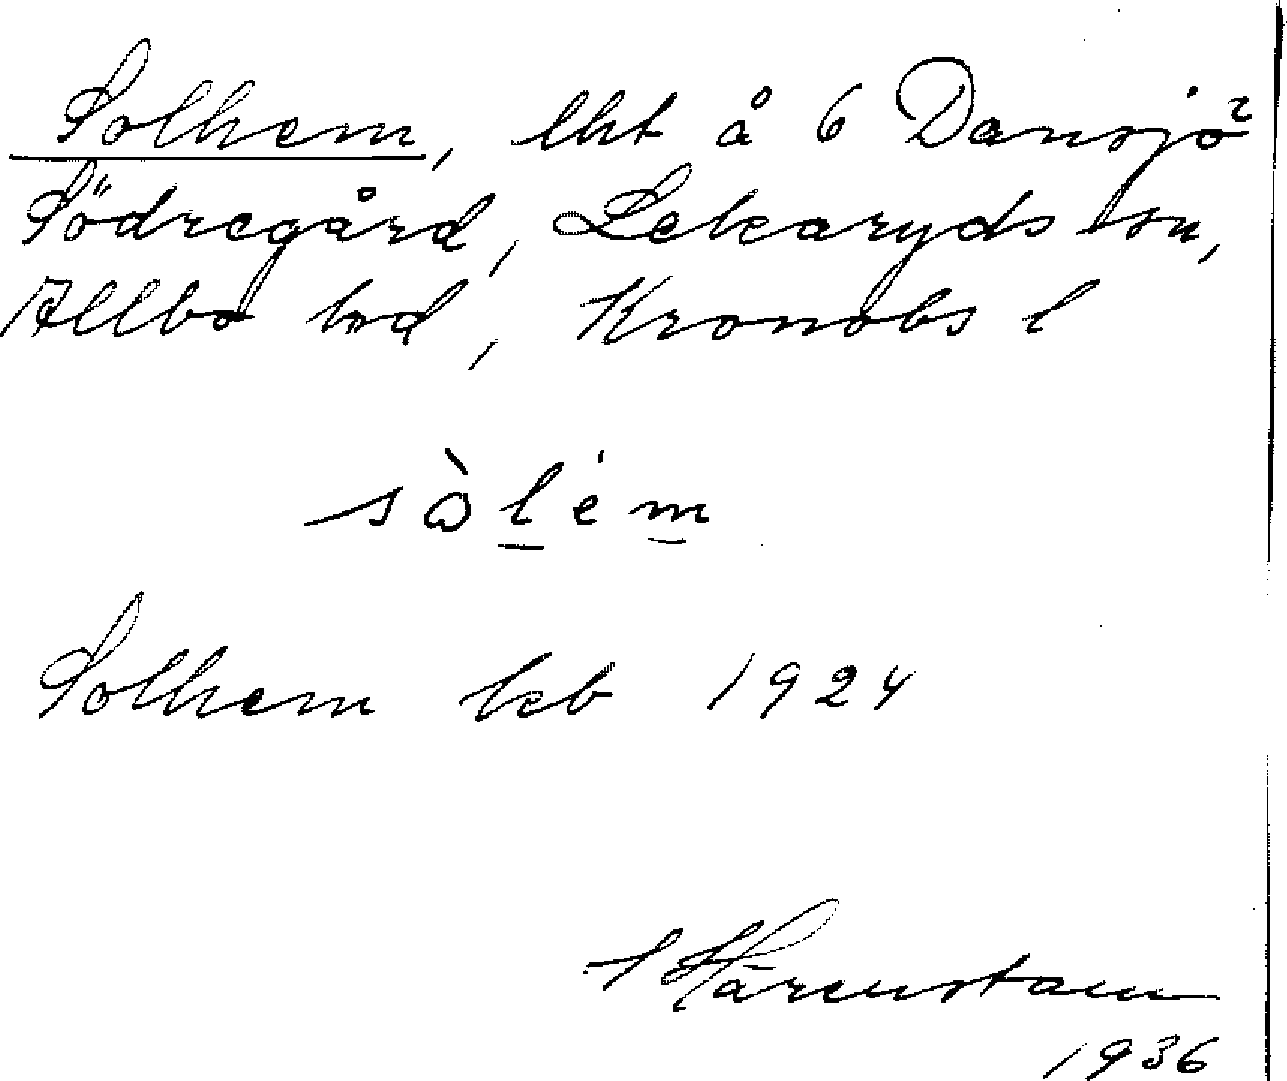 Solhem, lht å 6 Dansjö
Södregård, Lekaryds sn,
Allbo hd, Kronobs l
sòlém
Solhem kb 1924
Härenstam
1936